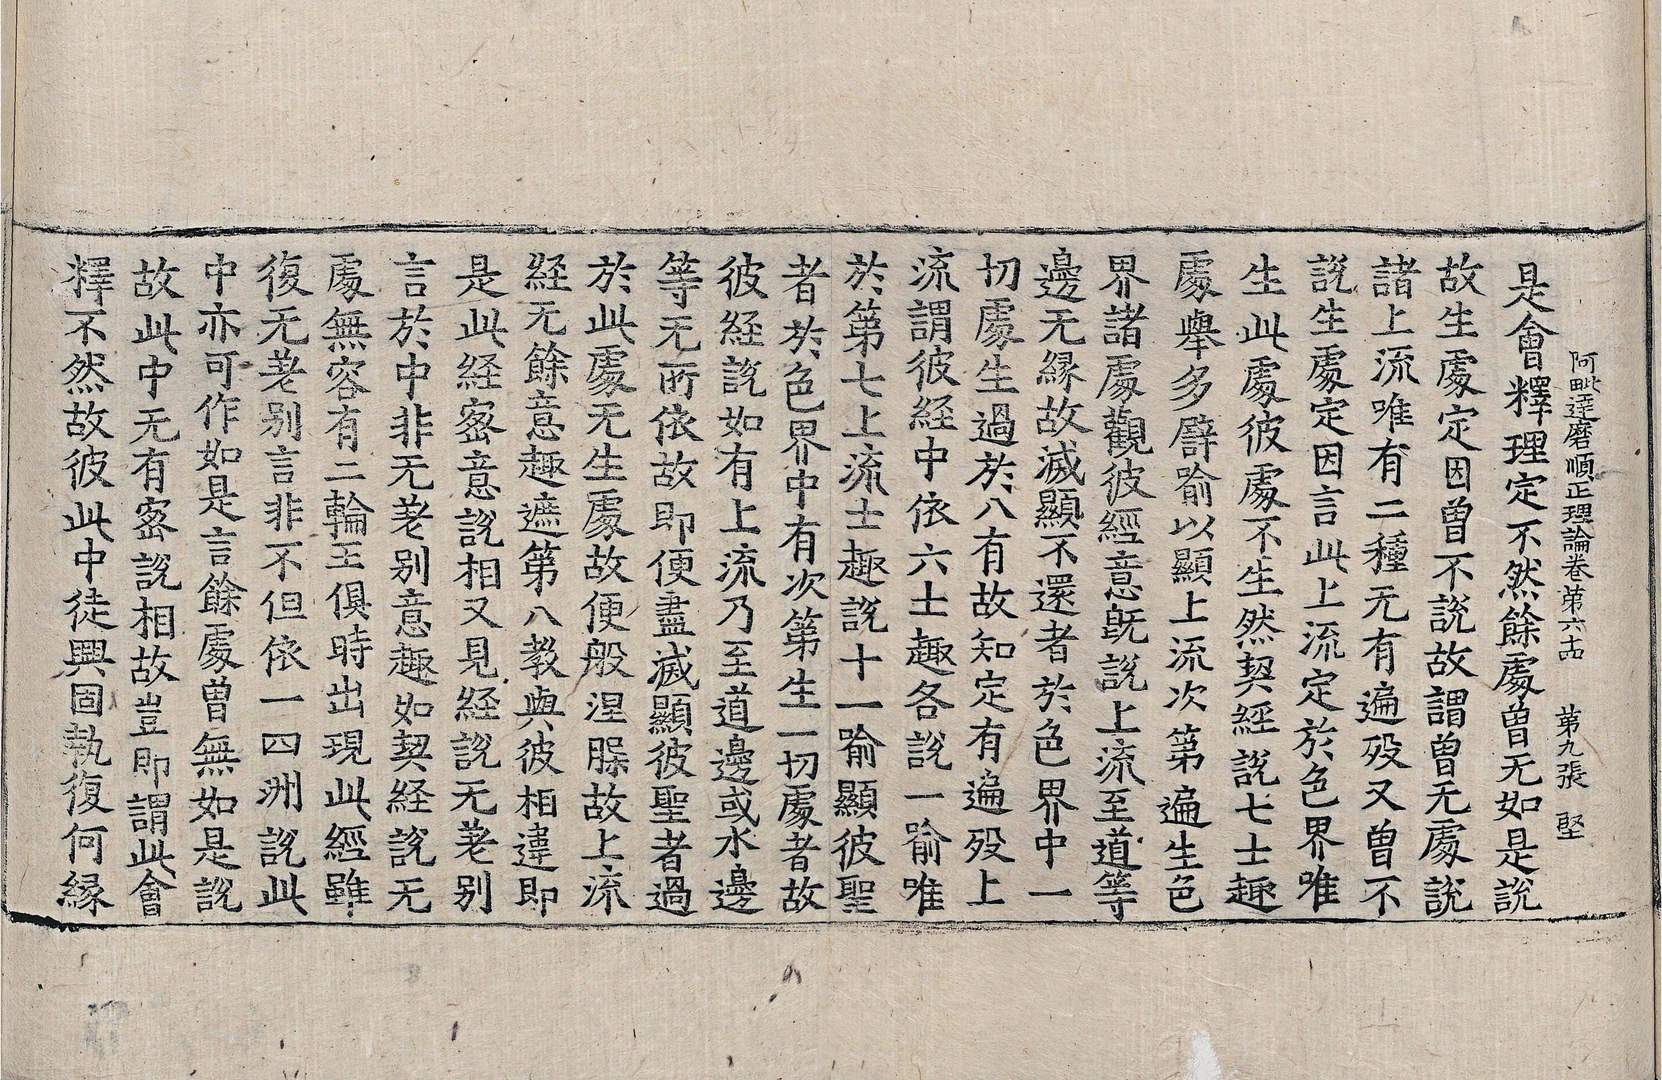 阿毗達磨順正理論卷第六十四　第九張　堅
是會釋理定不然餘處曾无如是說
故生處定因曾不說故謂曾无處說
諸上流唯有二種无有遍歿又曾不
說生處定因言此上流定於色界唯
生此處彼處不生然契經說七士趣
處舉多譬喻以顯上流次第遍生色
界諸處觀彼經意旣說上流至道等
邊无緣故滅顯不還者於色界中一
切處生過於八有故知定有遍歿上
流謂彼經中依六士趣各說一喻唯
於第七上流士趣說十一喻顯彼聖
者於色界中有次第生一切處者故
彼經說如有上流乃至道邊或水邊
等无所依故即便盡滅顯彼聖者過
於此處无生處故便般涅槃故上流
経无餘意趣遮第八教與彼相違即
是此経密意說相又見経說无差別
言於中非无差別意趣如契経說无
處無容有二輪王俱時出現此經雖
復无差別言非不但依一四洲說此
中亦可作如是言餘處曾無如是說
故此中无有密說相故豈即謂此會
釋不然故彼此中徒興固執復何緣